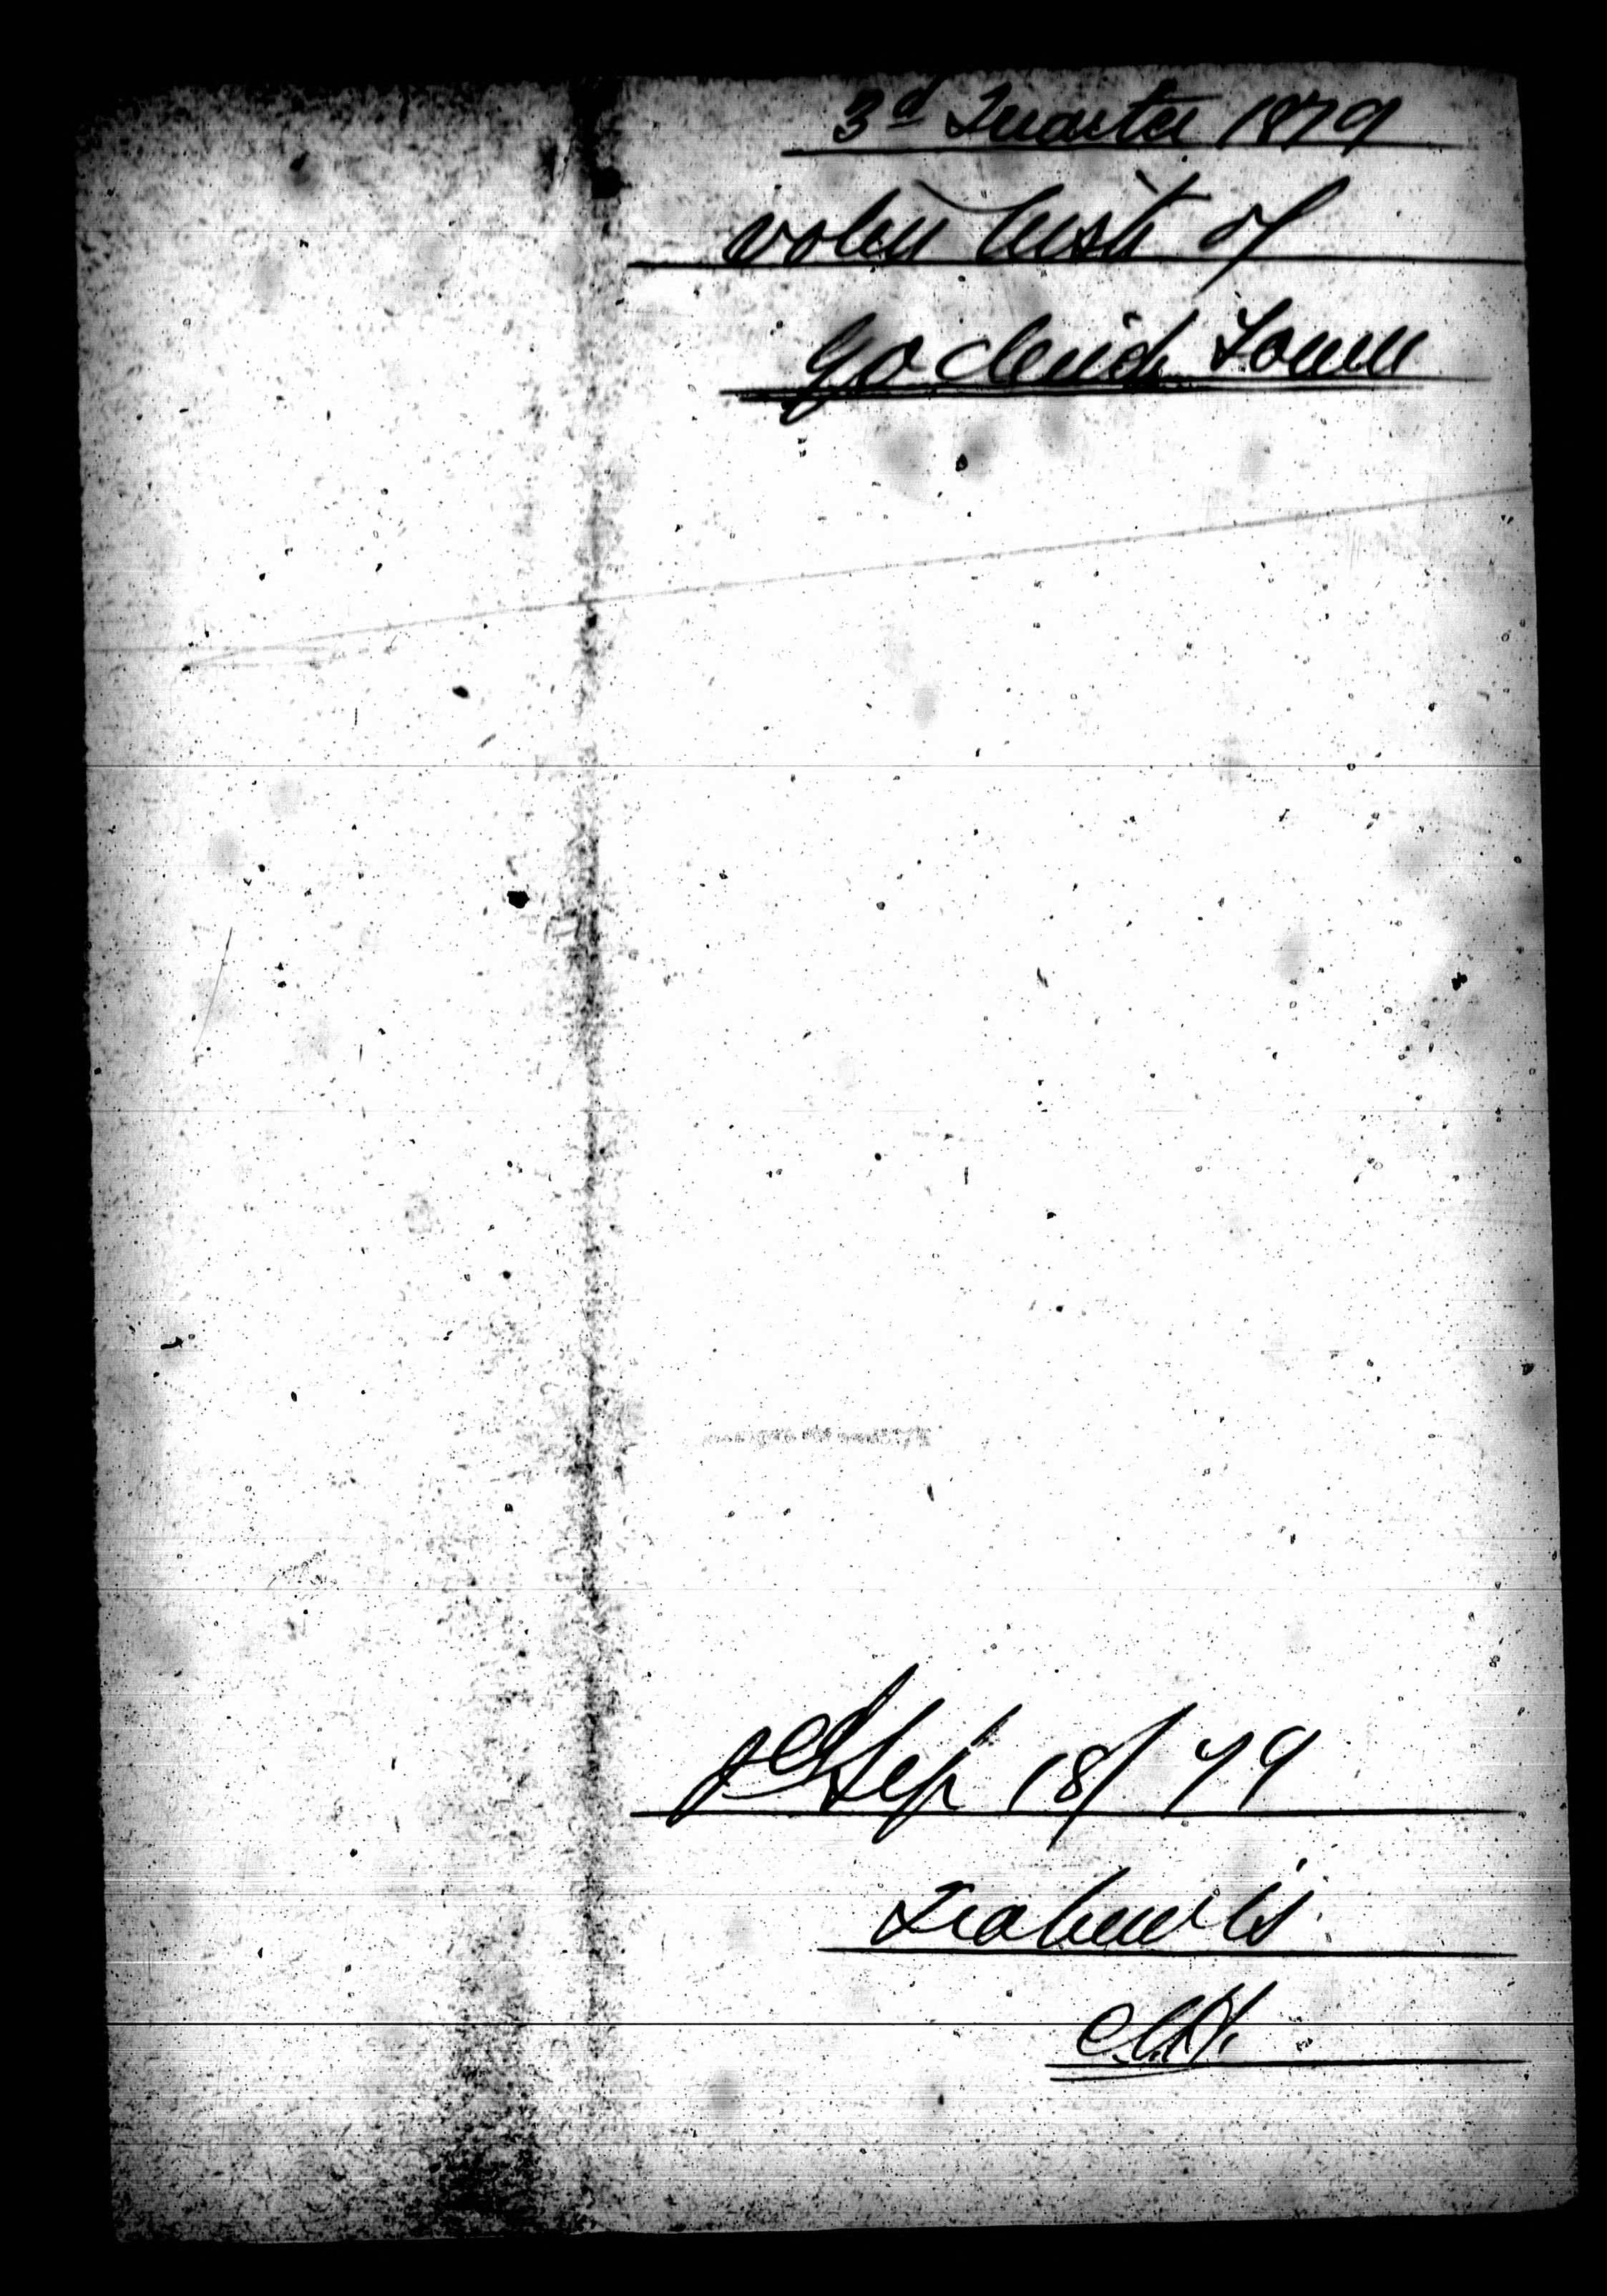 3d Quarter 1879
Voters List of
Goderich Town
Sep 18/79
Ira Lewis
Clk